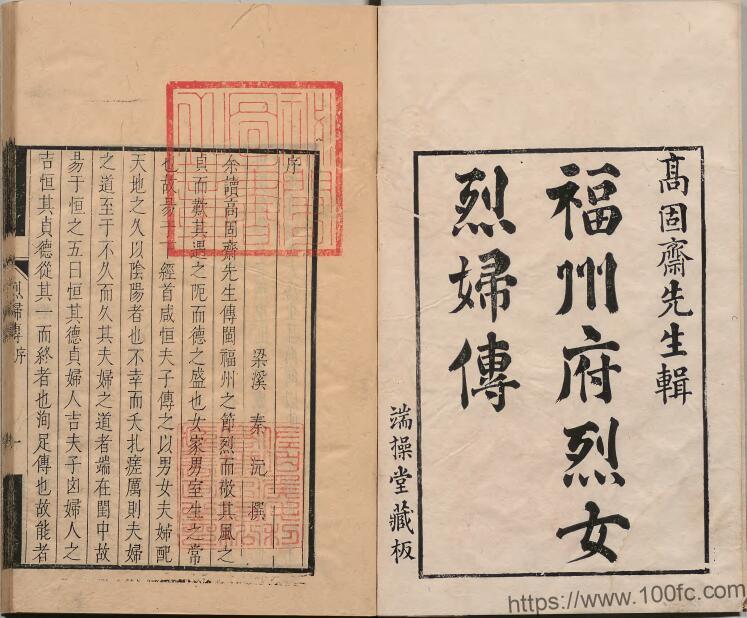 高固齋先生輯
福州府烈女
烈婦傳
端操堂藏板
序
梁溪 秦 沅 撰
余讀高固齋先生傳閩福州之節烈而敬其風之
貞而歎其遇之阨而德之盛也女家男室生之常
也故易下經首咸恒夫子傳之以男女夫婦配
天地之久以陰陽者也不幸而夭扎瘥厲則夫婦
之道至于不久而久其夫婦之道者端在閨中故
易于恒之五曰恒其德貞婦人吉夫子凶婦人之
吉恒其貞德從其一而終者也洵足傳也故能者
烈婦傳 序
一
https://www.100fc.com